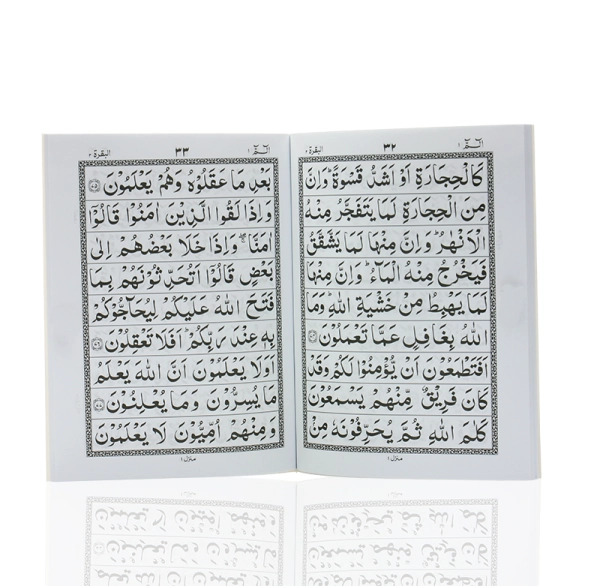 الٓمّٓ ١
٣٢
البقرة ٢
كَالْحِجَارَةِ اَوْ اَشَدُّ قَسْوَةً ؕ وَاِنَّ
مِنَ الْحِجَارَةِ لَمَا يَتَفَجَّرُ مِنْهُ
الْاَنْهٰرُ ؕ وَاِنَّ مِنْهَا لَمَا يَشَّقَّقُ
فَيَخْرُجُ مِنْهُ الْمَآءُ ؕ وَاِنَّ مِنْهَا
لَمَا يَهْبِطُ مِنْ خَشْيَةِ اللّٰهِ ؕ وَمَا
اللّٰهُ بِغَافِلٍ عَمَّا تَعْمَلُوْنَ
اَفَتَطْمَعُوْنَ اَنْ يُّؤْمِنُوْا لَكُمْ وَقَدْ
كَانَ فَرِيْقٌ مِّنْهُمْ يَسْمَعُوْنَ
كَلٰمَ اللّٰهِ ثُمَّ يُحَرِّفُوْنَهٗ مِنْۢ
منزل ١
الٓمّٓ ١
٣٣
البقرة ٢
بَعْدِ مَا عَقَلُوْهُ وَهُمْ يَعْلَمُوْنَ ٧٥
وَاِذَا لَقُوا الَّذِيْنَ اٰمَنُوْا قَالُوْۤا
اٰمَنَّا ۖ وَاِذَا خَلَا بَعْضُهُمْ اِلٰى
بَعْضٍ قَالُوْۤا اَتُحَدِّثُوْنَهُمْ بِمَا
فَتَحَ اللّٰهُ عَلَيْكُمْ لِيُحَآجُّوْكُمْ
بِهٖ عِنْدَ رَبِّكُمْ ؕ اَفَلَا تَعْقِلُوْنَ ٧٦
اَوَلَا يَعْلَمُوْنَ اَنَّ اللّٰهَ يَعْلَمُ
مَا يُسِرُّوْنَ وَمَا يُعْلِنُوْنَ ٧٧
وَمِنْهُمْ اُمِّيُّوْنَ لَا يَعْلَمُوْنَ
منزل ١